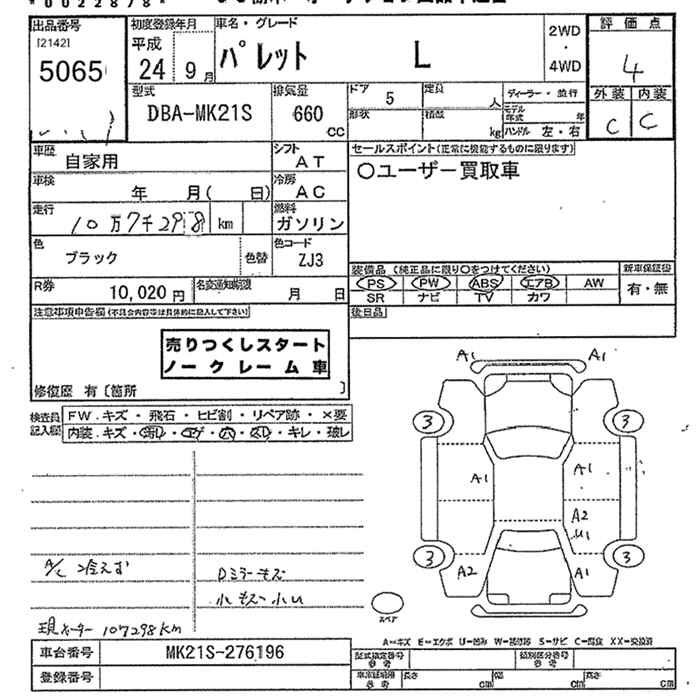 *0022878*
出品番号
[2142]
5065
初度登録年月
平成
24 9月
車名・グレード
パレット L
2WD
・
4WD
評価点
4
外装 内装
C C
型式
DBA-MK21S
排気量
660
CC
ドア
5
形状
定員
人
積載
kg
ディーラー・並行
モデル年式 年
ハンドル 左・右
車歴
自家用
シフト
AT
車検
年 月( 日)
冷房
AC
走行
10万7千298 km
燃料
ガソリン
色
ブラック
色替
色コード
ZJ3
R券
10,020円
名変通知期限
月 日
セールスポイント(正常に機能するものに限ります)
○ユーザー買取車
装備品 (純正品に限り○をつけてください)
PS PW ABS エアB AW
SR ナビ TV カワ
新車保証書
有・無
後日品
注意事項申告欄(不具合内容等は具体的に記入して下さい)
売りつくしスタート
ノークレーム車
修復歴 有〔箇所 〕
検査員記入欄
FW.キズ・飛石・ヒビ割・リペア跡・×要
内装.キズ・汚レ・コゲ・穴・スレ・キレ・破レ
A1 A1
3 3
A1 A1
A2
U1
3 3
A2 A1
スペア
A/C 冷えず
Dミラーキズ
小キズ小U
現メーター 107298km
A=キズ E=エクボ U=凹み W=補修跡 S=サビ C=腐食 XX=交換済
車台番号
MK21S-276196
登録番号
型式指定番号
参考
類別区分番号
参考
車検証明
参考
長さ cm
幅 cm
高さ cm